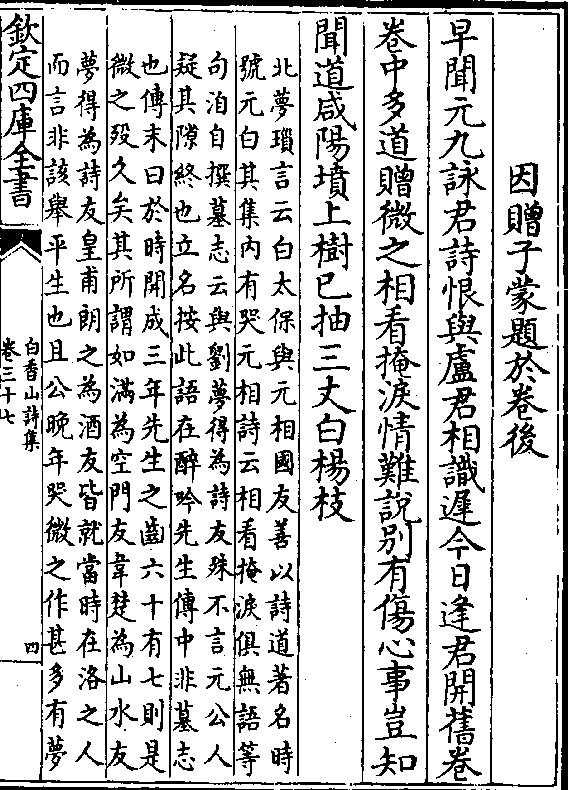 因贈子蒙題於卷後
早聞元九詠君詩恨與盧君相識遲今日逢君開舊卷
卷中多道贈微之相看掩淚情難說別有傷心事豈知
聞道咸陽墳上樹已抽三丈白楊枝
北夢瑣言云白太保與元相國友善以詩道著名時
號元白其集內有哭元相詩云相看掩淚俱無語等
句洎自撰墓志云與劉夢得為詩友殊不言元公人
疑其隙終也立名按此語在醉吟先生傳中非墓志
也傳末曰於時開成三年先生之齒六十有七則是
微之歿久矣其所謂如滿為空門友韋楚為山水友
夢得為詩友皇甫朗之為酒友皆就當時在洛之人
而言非該舉平生也且公晚年哭微之作甚多有夢
欽定四庫全書
白香山詩集
卷三十七
四